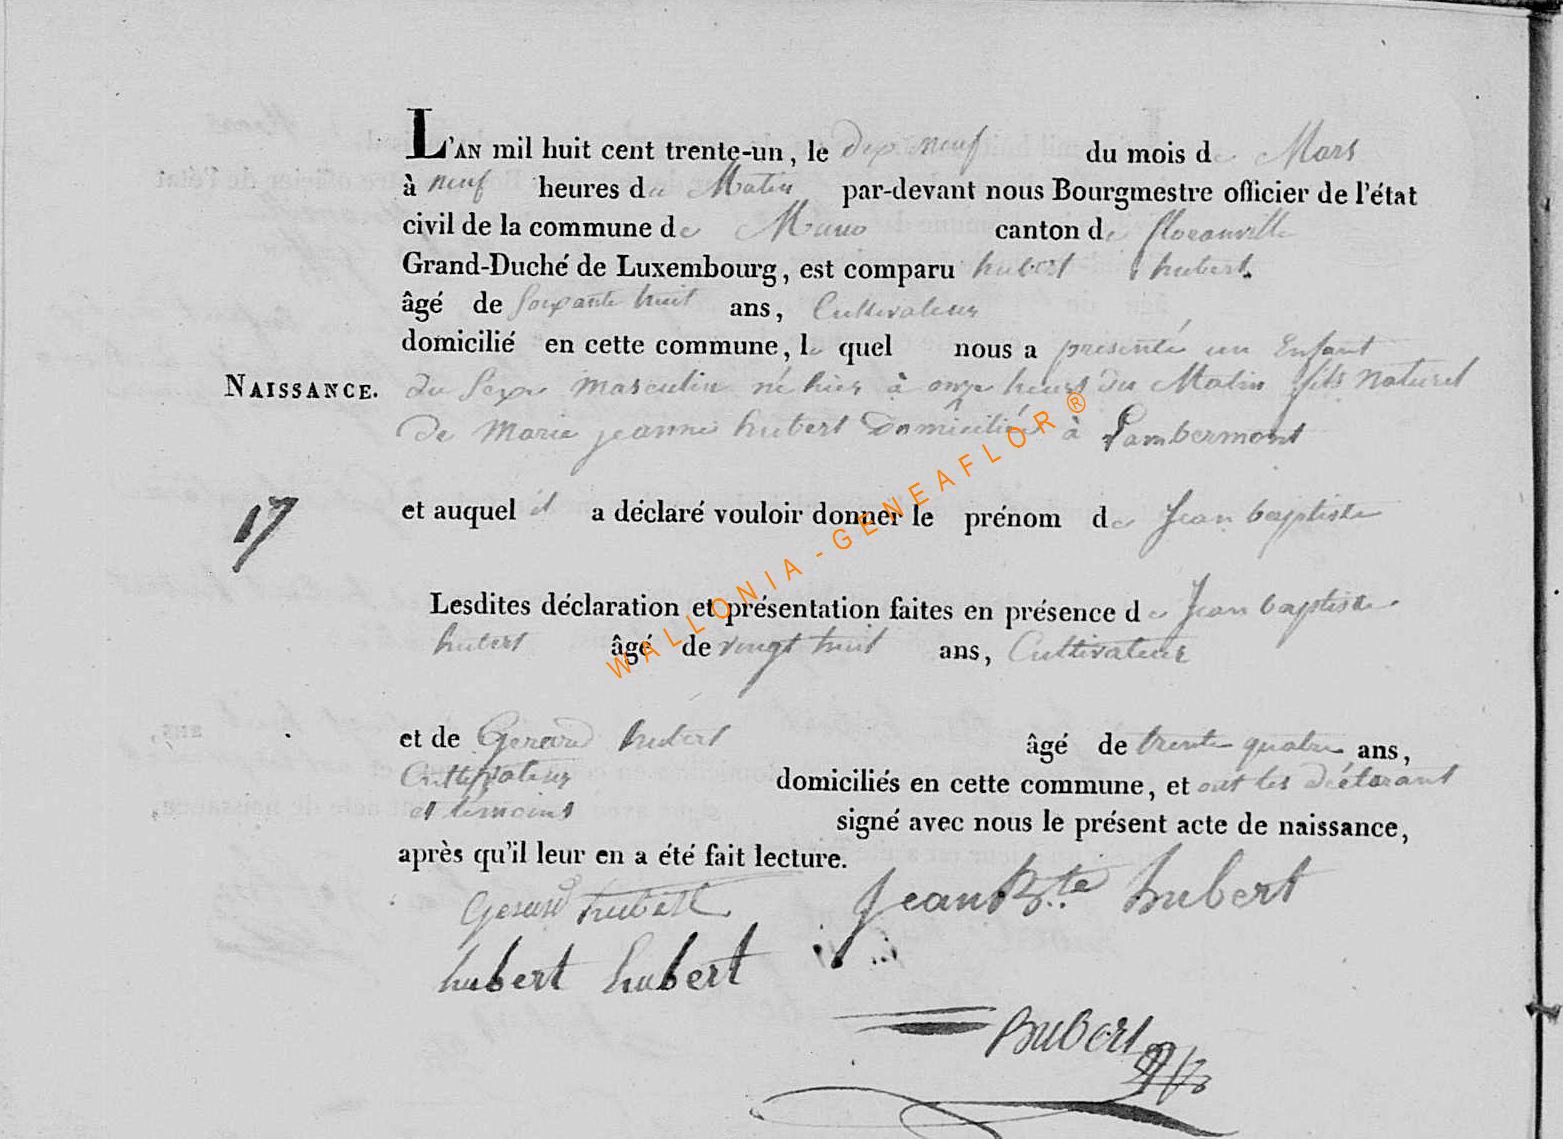 L'AN mil huit cent trente-un, le dix neuf du mois de Mars
à neuf heures du Matin par-devant nous Bourgmestre officier de l'état
civil de la commune de Muno canton de florenville
Grand-Duché de Luxembourg, est comparu hubert hubert
âgé de Soixante huit ans, Cultivateur
domicilié en cette commune, le quel nous a présenté un Enfant
NAISSANCE. du Sexe masculin né hier à onze heurs du Matin fils naturel
de Marie jeanne hubert Domicilié à Lambermont
17 et auquel il a déclaré vouloir donner le prénom de Jean baptiste
Lesdites déclaration et présentation faites en présence de Jean baptiste
hubert âgé de vingt huit ans, Cultivateur
et de Gerard hubert âgé de trente quatre ans,
Cultivateur domiciliés en cette commune, et ont les déclarant
et témoins signé avec nous le présent acte de naissance,
après qu'il leur en a été fait lecture.
Gerard hubert Jean Bte hubert
hubert hubert
WALLONIA - GENEAFLOR ®